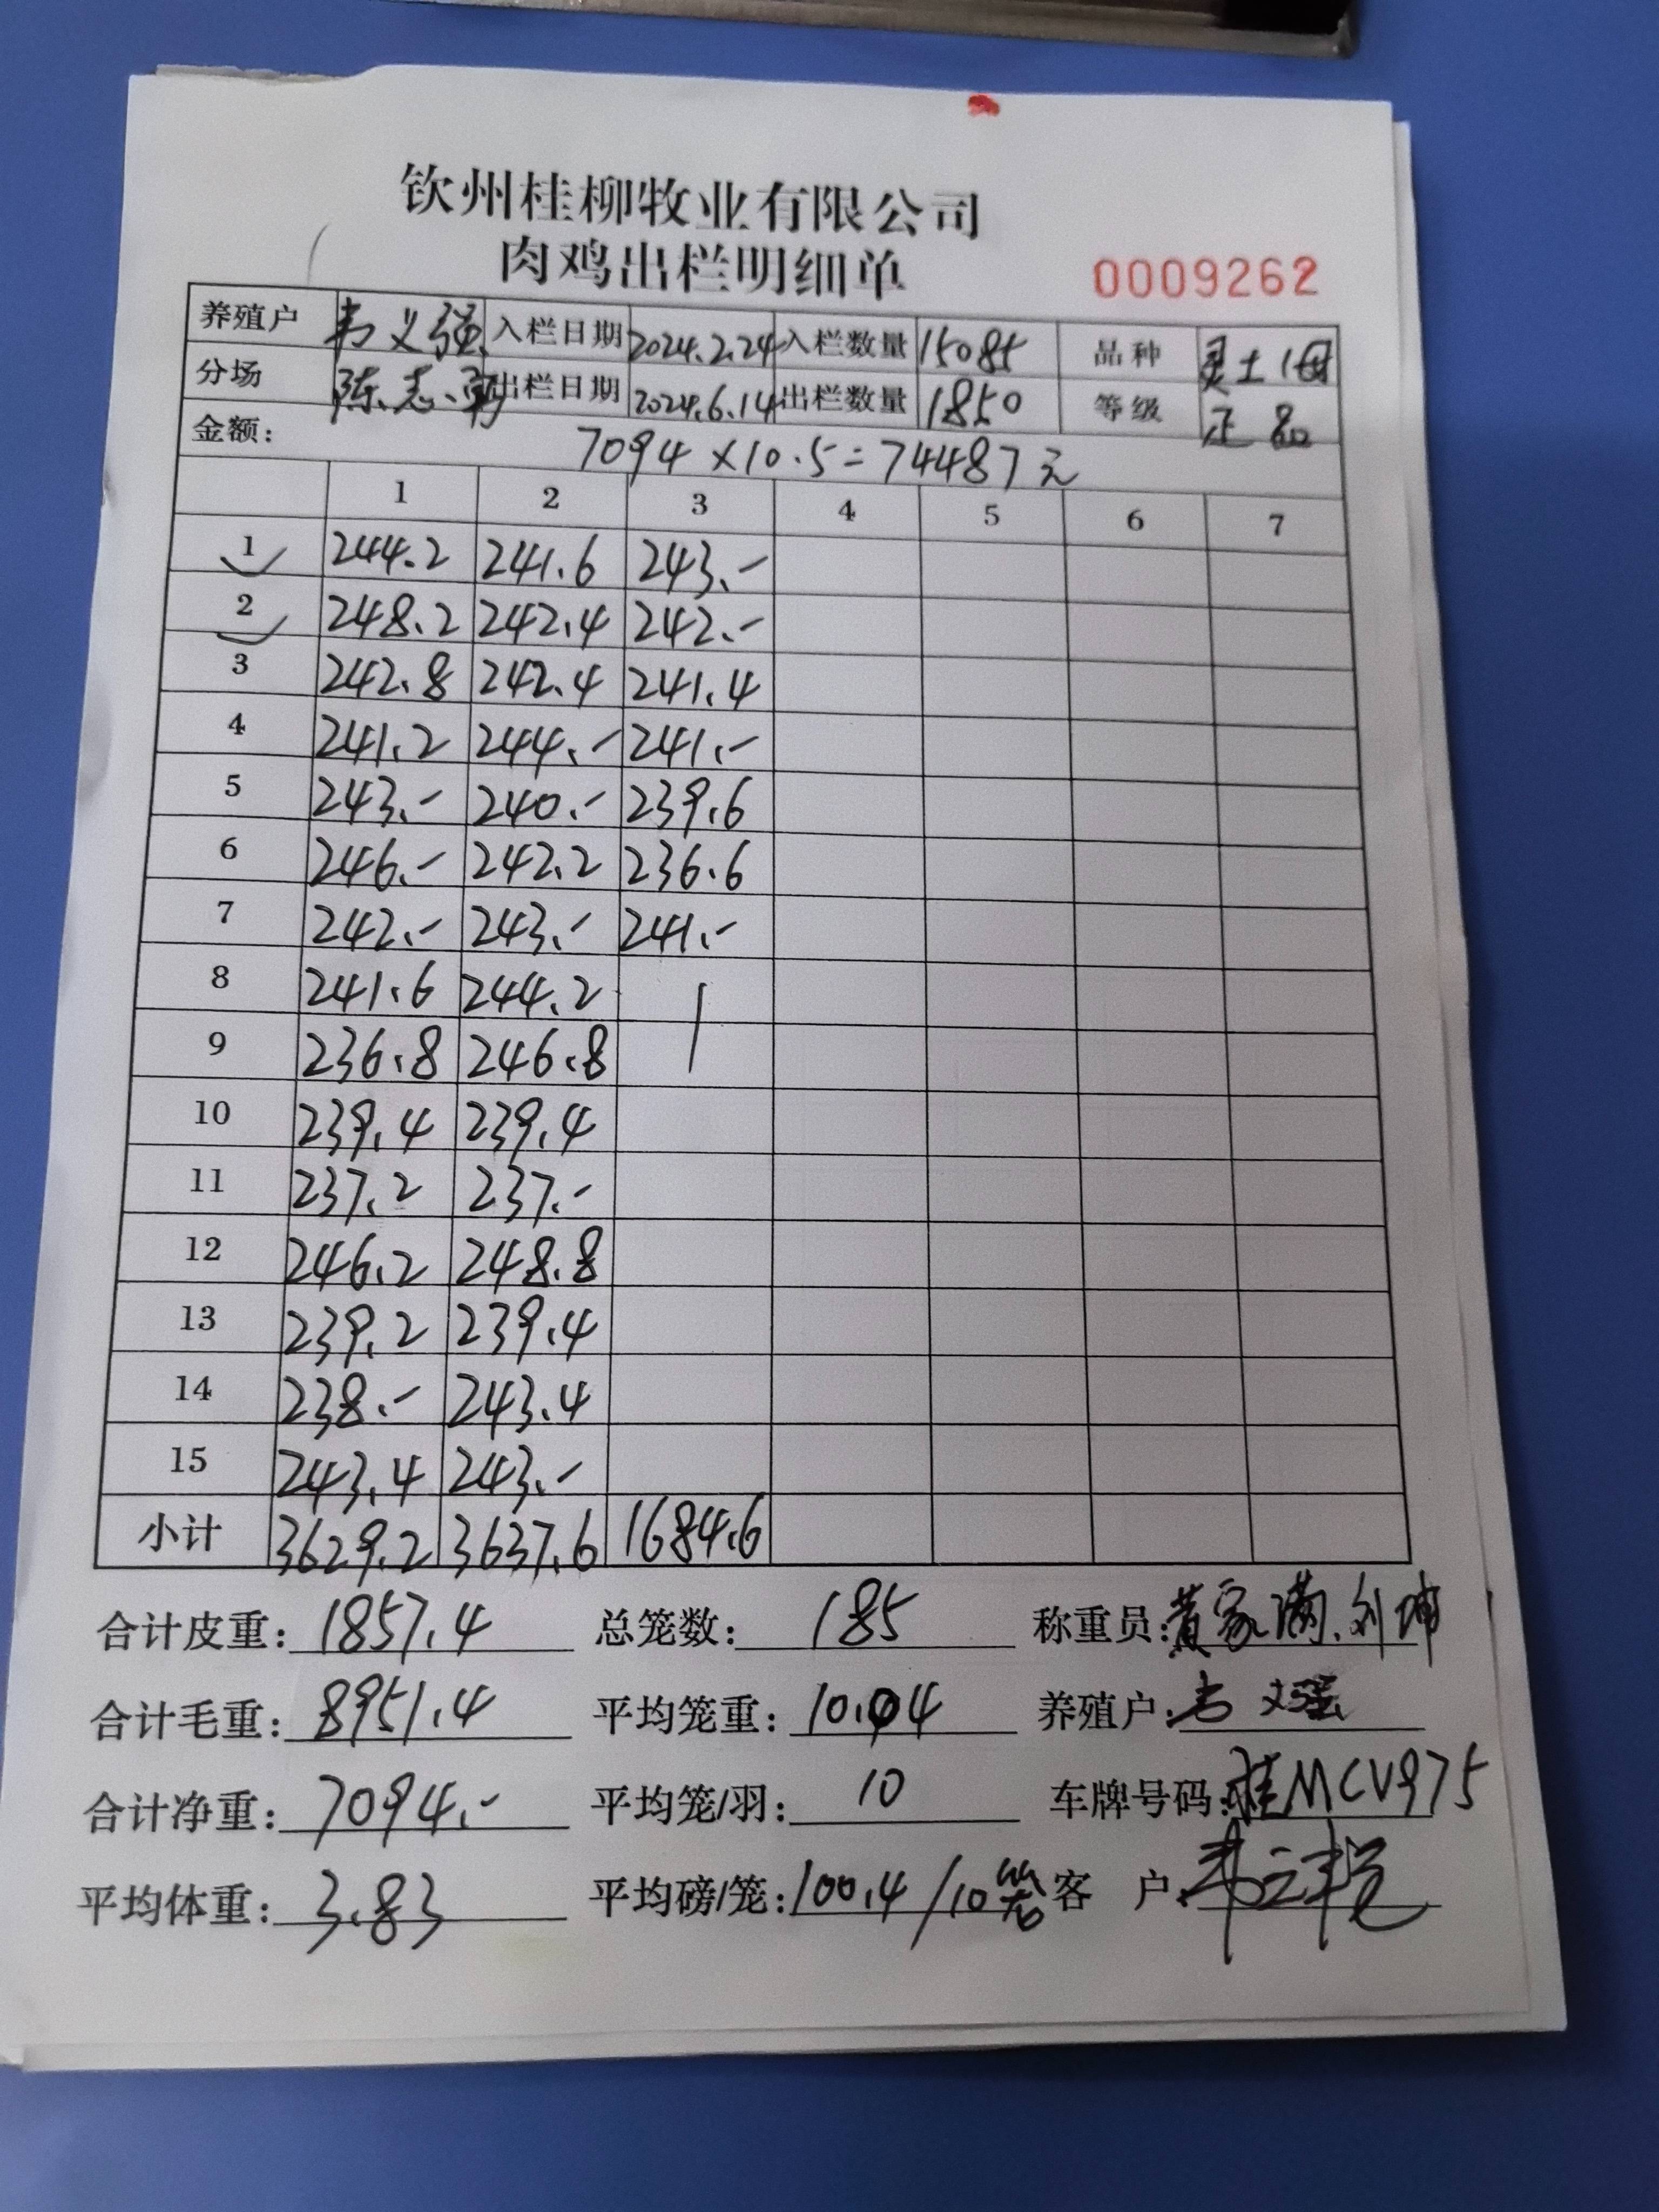 钦州桂柳牧业有限公司
肉鸡出栏明细单 0009262
养殖户 韦义强 入栏日期 2024.2.24 入栏数量 15085 品种 灵土1母
分场 陈志 出栏日期 2024.6.14 出栏数量 1850 等级 正品
金额: 7094×10.5=74487元
1 2 3 4 5 6 7
1 244.2 241.6 243.-
2 248.2 242.4 242.-
3 242.8 242.4 241.4
4 241.2 244.- 241.-
5 243.- 240.- 239.6
6 246.- 242.2 236.6
7 242.- 243.- 241.-
8 241.6 244.2
9 236.8 246.8
10 239.4 239.4
11 237.2 237.-
12 246.2 248.8
13 239.2 239.4
14 238.- 243.4
15 243.4 243.-
小计 3629.2 3637.6 1684.6
合计皮重: 1857.4 总笼数: 185 称重员: 黄家满.刘坤
合计毛重: 8951.4 平均笼重: 10.04 养殖户: 韦义强
合计净重: 7094.- 平均笼/羽: 10 车牌号码: 桂MCV975
平均体重: 3.83 平均磅/笼: 100.4/10笼 客 户: